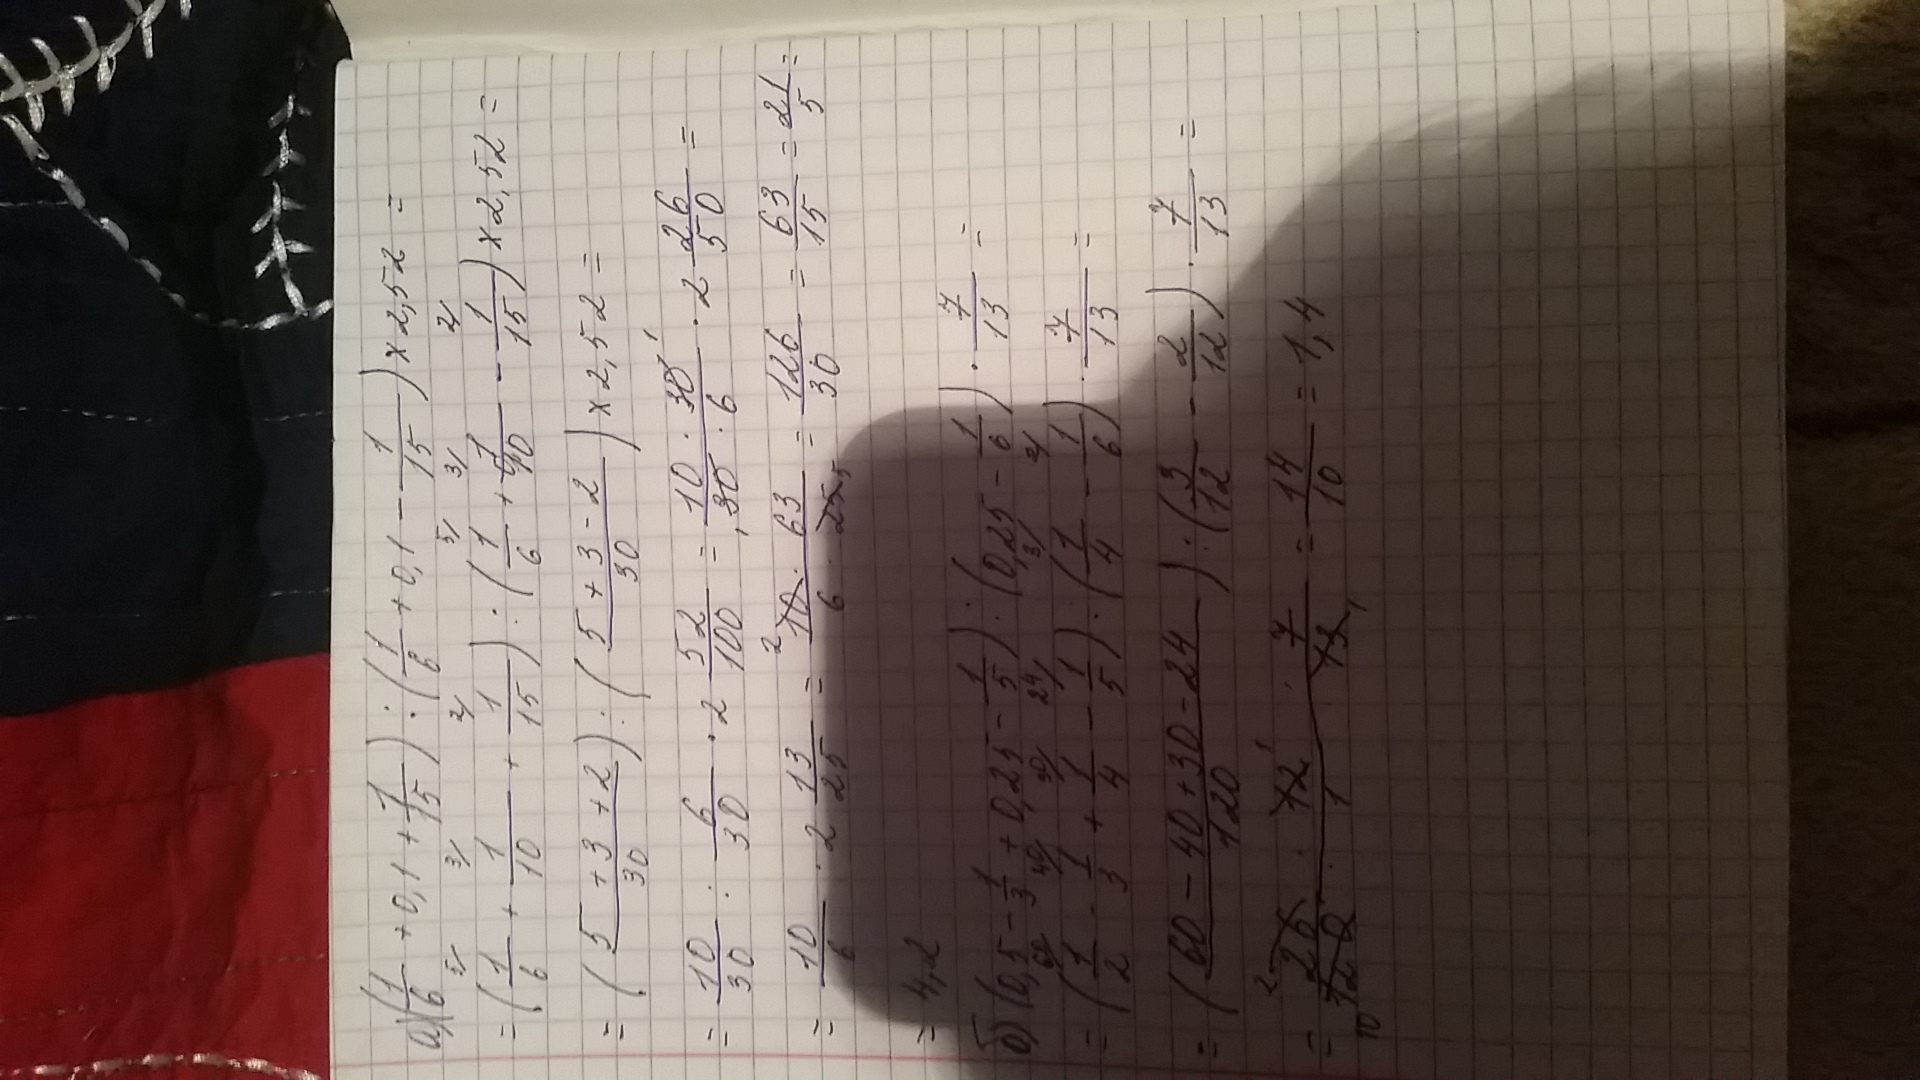 а) (1/6 + 0,1 + 1/15) : (1/6 + 0,1 - 1/15) × 2,52 =
5/ 3/ 2/ 5/ 3/ 2/
= (1/6 + 1/10 + 1/15) : (1/6 + 1/10 - 1/15) × 2,52 =
= (5 + 3 + 2 / 30) : (5 + 3 - 2 / 30) × 2,52 =
= 10/30 : 6/30 · 2 52/100 = 10 · 30 / 30 · 6 · 2 26/50 =
= 10/6 · 2 13/25 = 10 · 63 / 6 · 25 = 126/30 = 63/15 = 21/5 =
= 4,2
б) (0,5 - 1/3 + 0,25 - 1/5) : (0,25 - 1/6) · 7/13 =
= (1/2 - 1/3 + 1/4 - 1/5) : (1/4 - 1/6) · 7/13 =
= (60 - 40 + 30 - 24 / 120) : (3/12 - 2/12) · 7/13 =
= 26 · 12 · 7 / 120 · 1 · 13 = 14/10 = 1,4